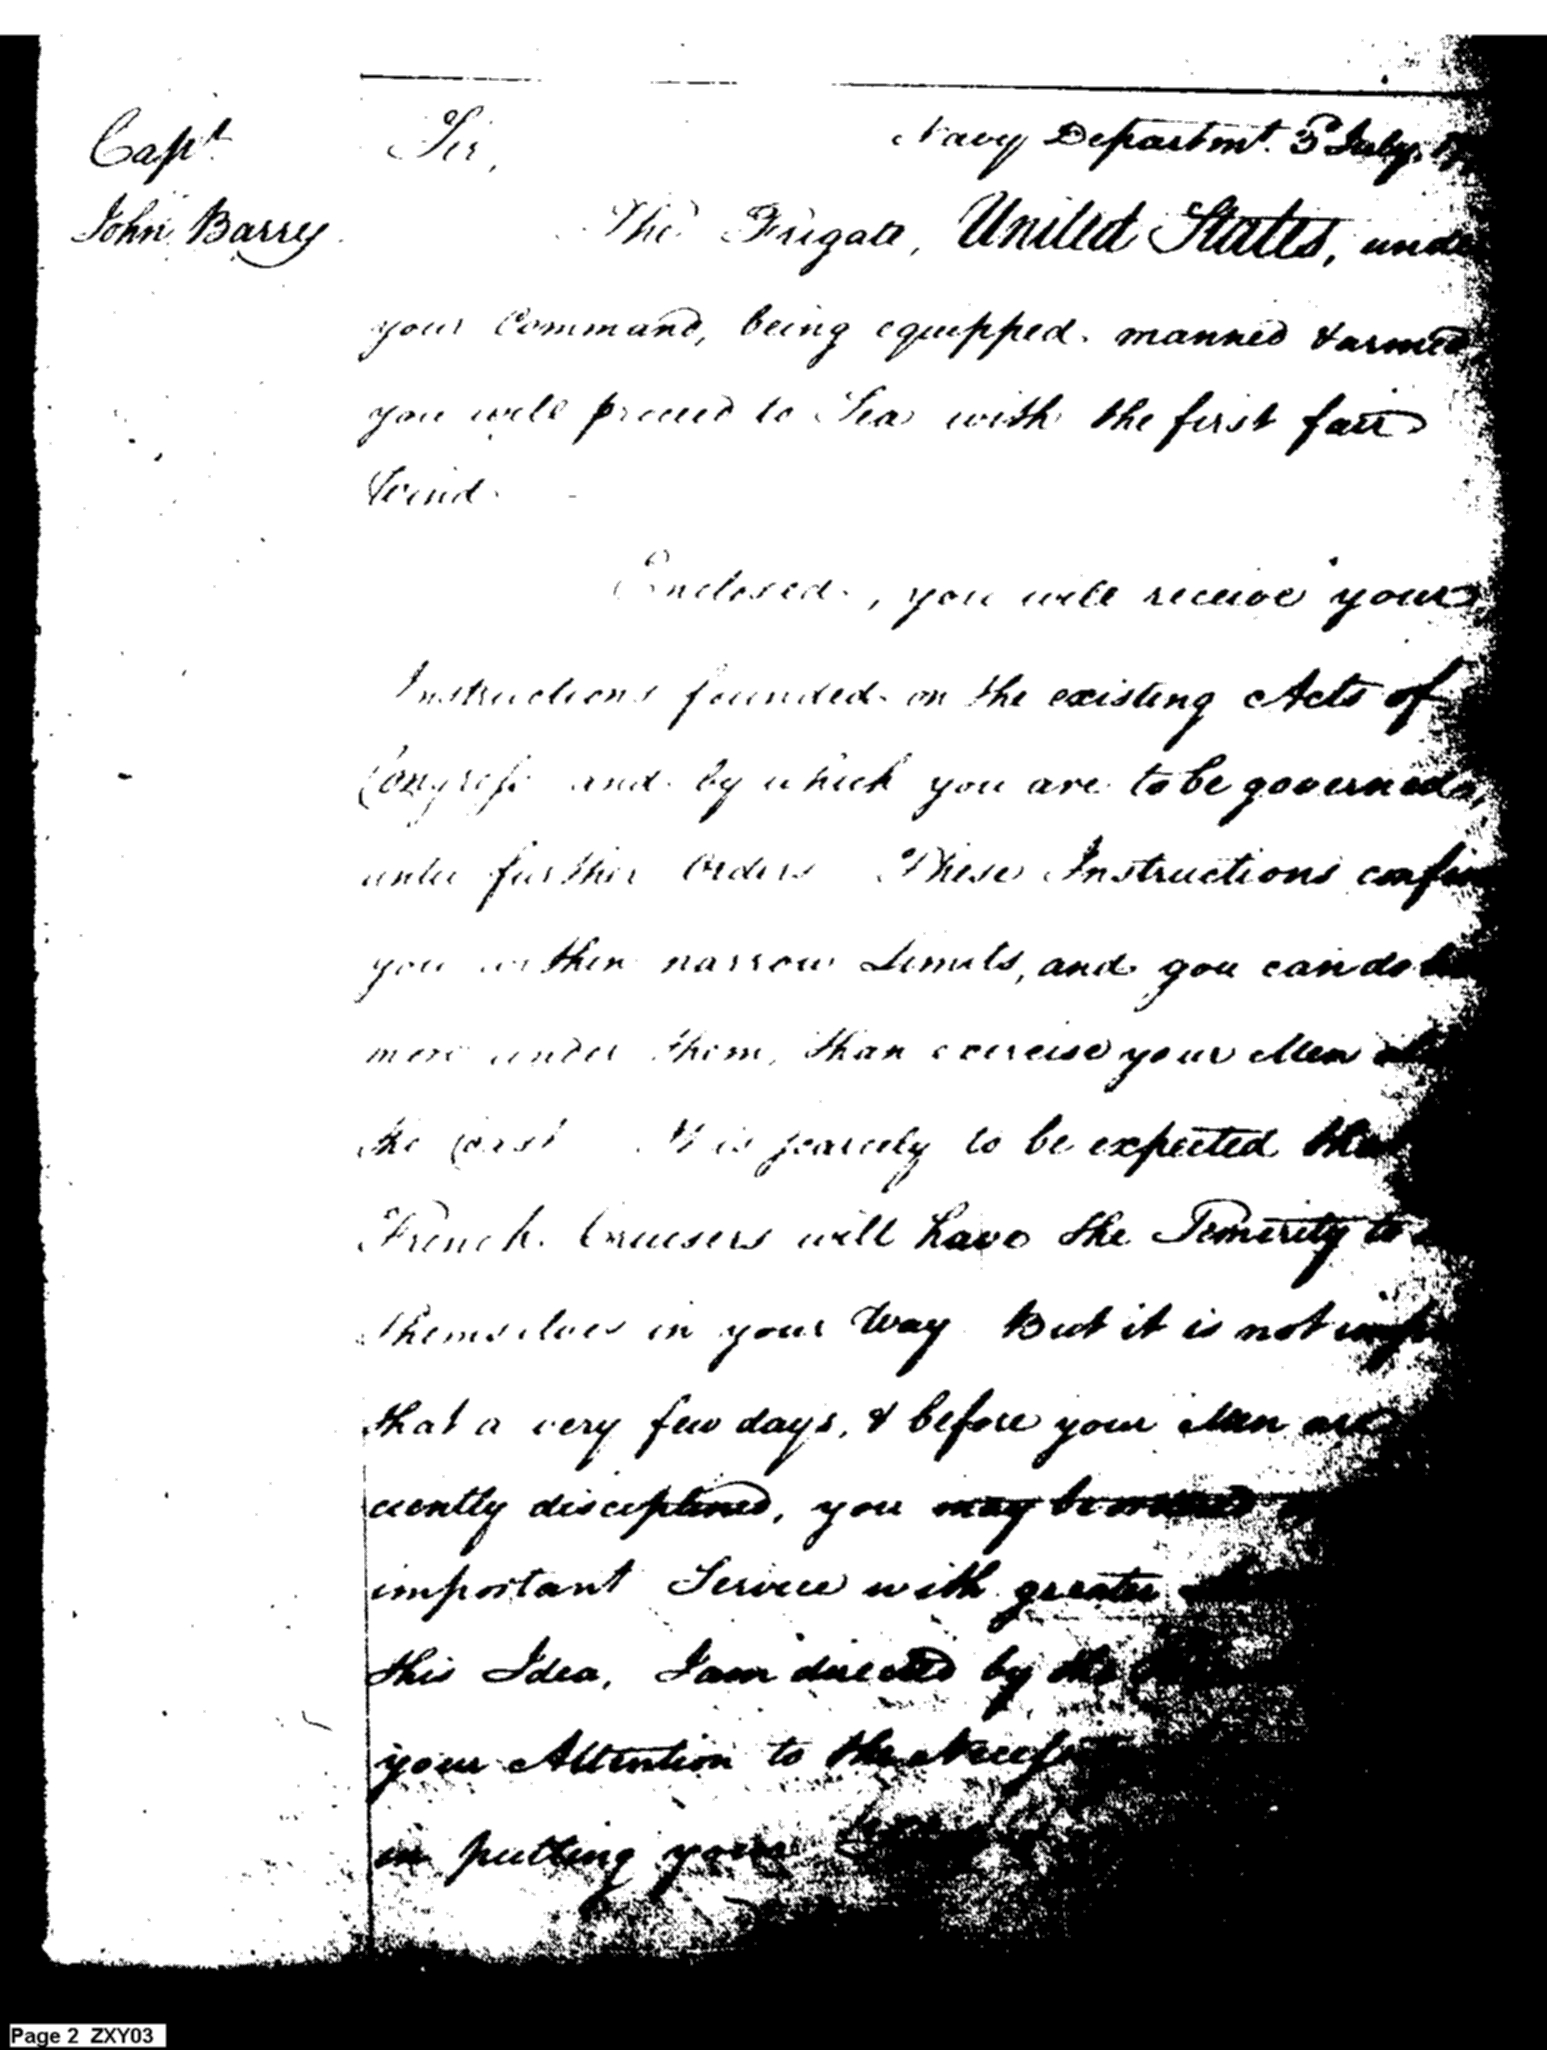 Capt
John Barry
Sir,
Navy Departmt. 3d July,
The Frigate, United States, unde
your Command, being equipped, manned & armed,
you will proceed to Sea with the first fair
Wind.
Enclosed, you will receive your
Instructions founded on the existing Acts of
Congress and by which you are to be governed,
until further Orders These Instructions confi
you within narrow Limits, and you can do
more under them, than exercise your Men
the Coast It is scarcely to be expected
French Cruisers will have the Temerity to
themselves in your Way But it is not
that a very few days, & before your Men are
ciently disciplined, you may be
important Service with greater
this Idea, I am directed by the
your Attention to the
in putting your
Page 2 ZXY03